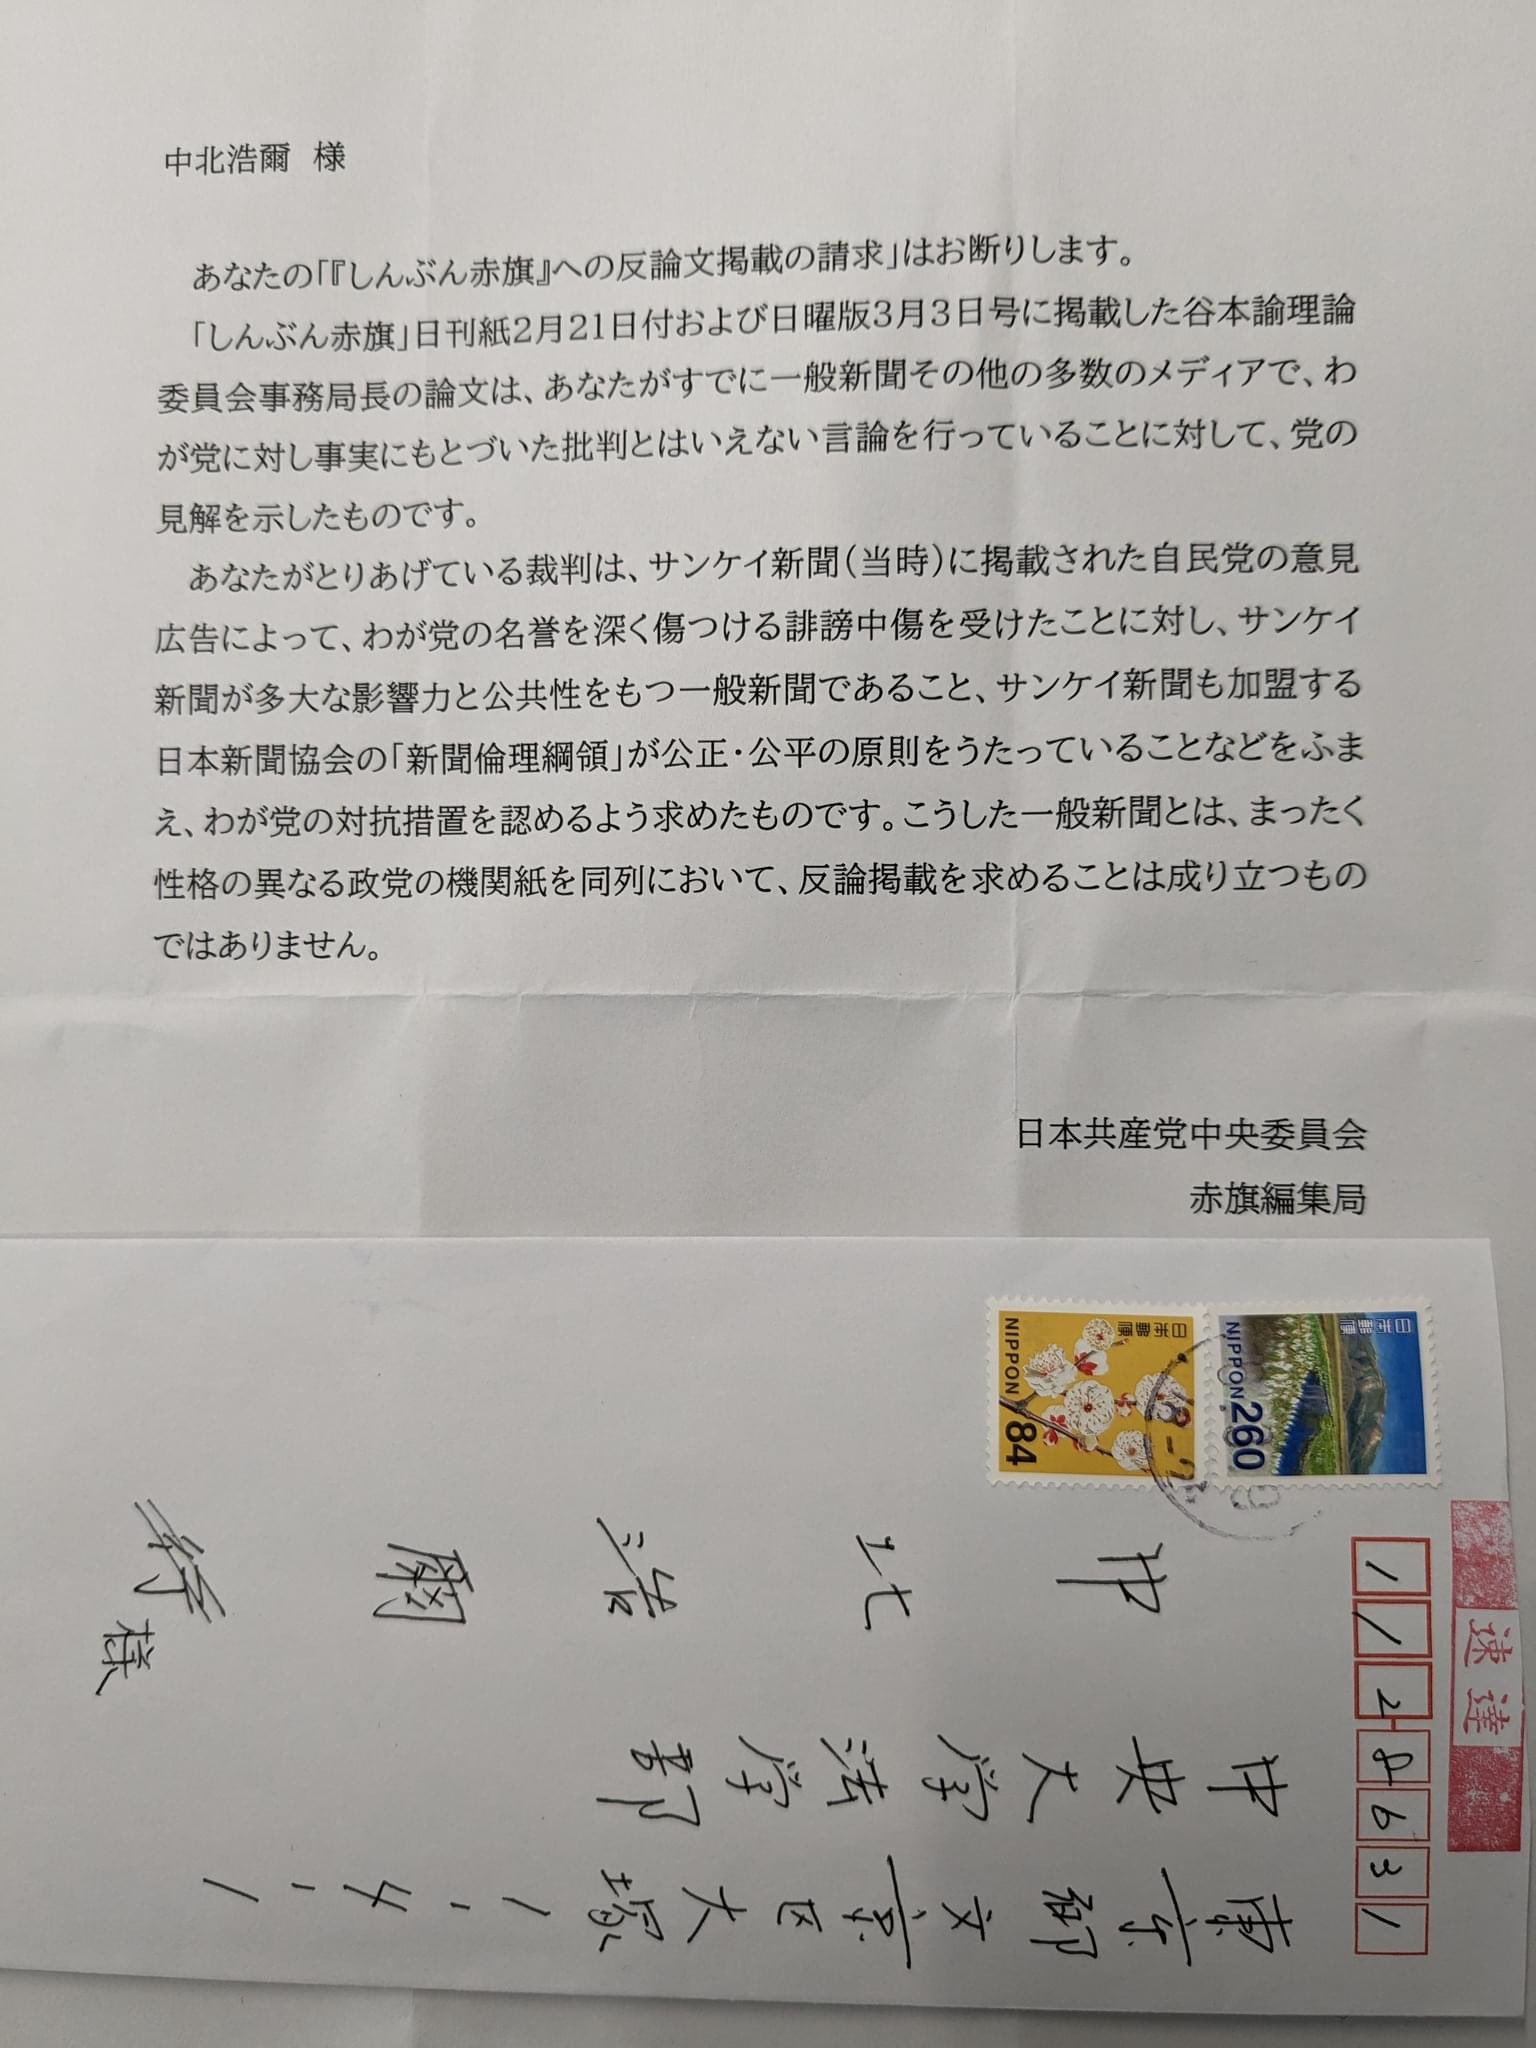 中北浩爾 様
あなたの「『しんぶん赤旗』への反論文掲載の請求」はお断りします。
「しんぶん赤旗」日刊紙2月21日付および日曜版3月3日号に掲載した谷本諭理論
委員会事務局長の論文は、あなたがすでに一般新聞その他の多数のメディアで、わ
が党に対し事実にもとづいた批判とはいえない言論を行っていることに対して、党の
見解を示したものです。
あなたがとりあげている裁判は、サンケイ新聞(当時)に掲載された自民党の意見
広告によって、わが党の名誉を深く傷つける誹謗中傷を受けたことに対し、サンケイ
新聞が多大な影響力と公共性をもつ一般新聞であること、サンケイ新聞も加盟する
日本新聞協会の「新聞倫理綱領」が公正・公平の原則をうたっていることなどをふま
え、わが党の対抗措置を認めるよう求めたものです。こうした一般新聞とは、まったく
性格の異なる政党の機関紙を同列において、反論掲載を求めることは成り立つもの
ではありません。
日本共産党中央委員会
赤旗編集局
速達
日本郵便
NIPPON 260
日本郵便
NIPPON 84
東京都文京区大塚1-4-1
中央大学法学部
中北浩爾
行
様